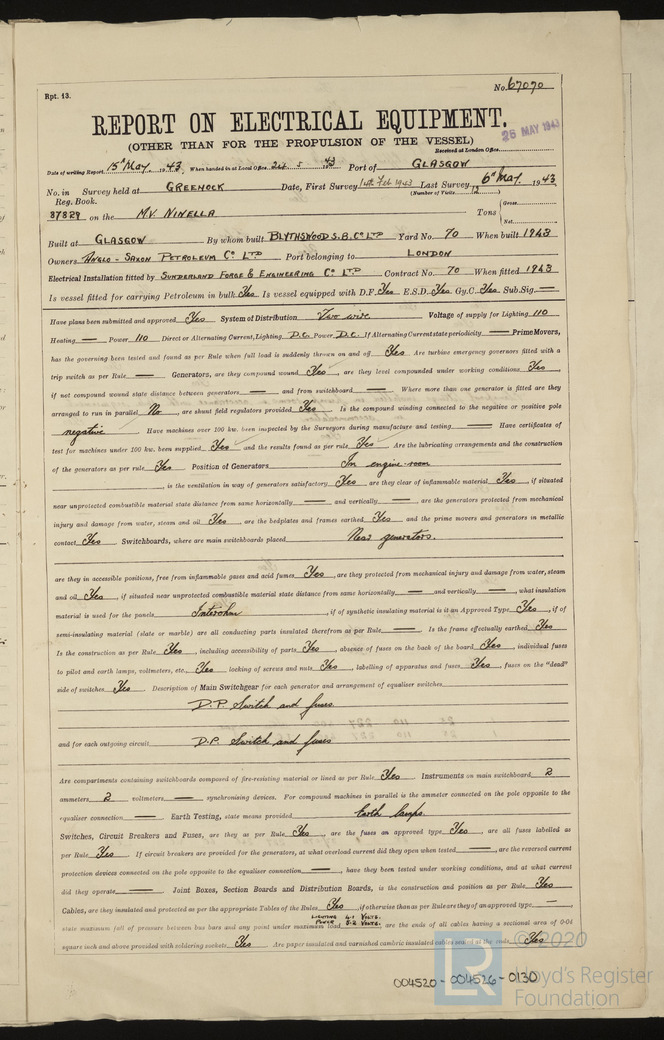 Rpt. 13.
No. 67070
REPORT ON ELECTRICAL EQUIPMENT.
(OTHER THAN FOR THE PROPULSION OF THE VESSEL)
26 MAY 1943
Received at London Office
Date of writing Report 15th May, 1943. When handed in at Local Office 5 1943 Port of GLASGOW
No. in Survey held at GREENOCK Date, First Survey 14th Feb 1943 Last Survey 6th May. 1943
Reg. Book. (Number of Visits 12)
37829 on the M.V. NINELLA Tons { Gross Net
Built at GLASGOW By whom built BLYTHSWOOD S.B. Co LTD Yard No. 70 When built 1943
Owners ANGLO-SAXON PETROLEUM Co LTD Port belonging to LONDON
Electrical Installation fitted by SUNDERLAND FORGE & ENGINEERING Co LTD. Contract No. 70 When fitted 1943
Is vessel fitted for carrying Petroleum in bulk Yes. Is vessel equipped with D.F. Yes E.S.D. Yes Gy.C. Yes Sub.Sig. —
Have plans been submitted and approved Yes System of Distribution Two wire Voltage of supply for Lighting 110
Heating — Power 110 Direct or Alternating Current, Lighting D.C. Power D.C. If Alternating Current state periodicity — Prime Movers,
has the governing been tested and found as per Rule when full load is suddenly thrown on and off Yes Are turbine emergency governors fitted with a
trip switch as per Rule — Generators, are they compound wound Yes, are they level compounded under working conditions Yes,
if not compound wound state distance between generators — and from switchboard — Where more than one generator is fitted are they
arranged to run in parallel No, are shunt field regulators provided Yes Is the compound winding connected to the negative or positive pole
negative Have machines over 100 kw. been inspected by the Surveyors during manufacture and testing — Have certificates of
test for machines under 100 kw. been supplied Yes and the results found as per rule Yes Are the lubricating arrangements and the construction
of the generators as per rule Yes Position of Generators In engine room
, is the ventilation in way of generators satisfactory Yes are they clear of inflammable material Yes, if situated
near unprotected combustible material state distance from same horizontally — and vertically —, are the generators protected from mechanical
injury and damage from water, steam and oil Yes, are the bedplates and frames earthed Yes and the prime movers and generators in metallic
contact Yes Switchboards, where are main switchboards placed Near generators.
are they in accessible positions, free from inflammable gases and acid fumes Yes, are they protected from mechanical injury and damage from water, steam
and oil Yes, if situated near unprotected combustible material state distance from same horizontally — and vertically —, what insulation
material is used for the panels, if of synthetic insulating material is it an Approved Type Yes, if of
semi-insulating material (slate or marble) are all conducting parts insulated therefrom as per Rule — Is the frame effectually earthed Yes
Is the construction as per Rule Yes, including accessibility of parts Yes, absence of fuses on the back of the board Yes, individual fuses
to pilot and earth lamps, voltmeters, etc. Yes locking of screws and nuts Yes, labelling of apparatus and fuses Yes, fuses on the "dead"
side of switches Yes Description of Main Switchgear for each generator and arrangement of equaliser switches
D.P. Switch and fuses.
and for each outgoing circuit D.P. Switch and fuses
Are compartments containing switchboards composed of fire-resisting material or lined as per Rule Yes Instruments on main switchboard 2
ammeters 2 voltmeters — synchronising devices. For compound machines in parallel is the ammeter connected on the pole opposite to the
equaliser connection — Earth Testing, state means provided Earth lamps.
Switches, Circuit Breakers and Fuses, are they as per Rule Yes, are the fuses an approved type Yes, are all fuses labelled as
per Rule Yes If circuit breakers are provided for the generators, at what overload current did they open when tested —, are the reversed current
protection devices connected on the pole opposite to the equaliser connection —, have they been tested under working conditions, and at what current
did they operate — Joint Boxes, Section Boards and Distribution Boards, is the construction and position as per Rule Yes
Cables, are they insulated and protected as per the appropriate Tables of the Rules Yes, if otherwise than as per Rule are they of an approved type —
LIGHTING 4.1 VOLTS.
state maximum fall of pressure between bus bars and any point under maximum load POWER 5.2 VOLTS. are the ends of all cables having a sectional area of 0.04
square inch and above provided with soldering sockets Yes Are paper insulated and varnished cambric insulated cables sealed at the ends Yes
© 2020
LR Lloyd's Register
Foundation
004520-004526-0130